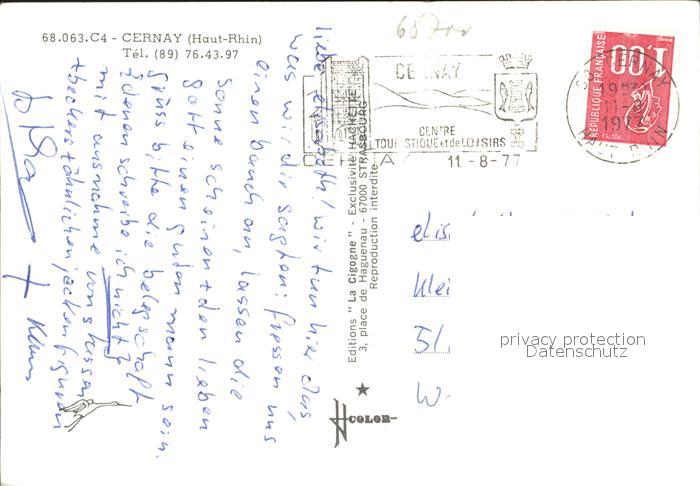 68.063.C4 - CERNAY (Haut-Rhin)
Tél. (89) 76.43.97
68700
liebe elisabeth! wir tun hier das,
was wir dir sagten: fressen uns
einen bauch an, lassen die
sonne scheinen + den lieben
gott einen guten mann sein.
grüss bitte die belegschaft
(denen schreibe ich nicht)
mit ausnahme von
+ ähnlichen jackenfiguren
+ Klaus
CERNAY
CENTRE
TOURISTIQUE et de LOISIRS
CERNAY 11-8-77
68 CERNAY
19H
11-8
1977
HAUT-RHIN
RÉPUBLIQUE FRANÇAISE
1,00
Editions " La Cigogne " - Exclusivité HACHETTE
3, place de Haguenau - 67000 STRASBOURG
Reproduction interdite
COLOR
elis
klei
51.
W.
privacy protection
Datenschutz